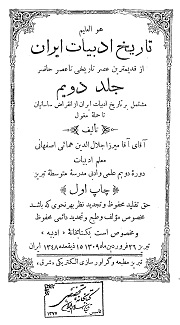 هو العلیم
تاریخ ادبیات ایران
از قدیمترین عصر تاریخی تا عصر حاضر
جلد دویم
مشتمل بر تاریخ ادبیات ایران از انقراض ساسانیان
تا حملهٔ مغول
تألیف
آقای آقا میرزا جلال الدین همائی اصفهانی
معلم ادبیات
دورهٔ دویم علمی و ادبی مدرسه متوسطهٔ تبریز
چاپ اول
حق تقلید محفوظ و تجدید نظر بهر نحوی که باشد
مخصوص مؤلف و طبع و تجدید دائمی محفوظ
و مخصوص است بکتابخانهٔ «ادبیه»
تبریز ۲۶ فروردین ماه ۱۳۰۹ ۱۵ ذیقعده ۱۳۴۸ ایران
تبریز مطبعه و گراورسازی الکتریکی «شرق»